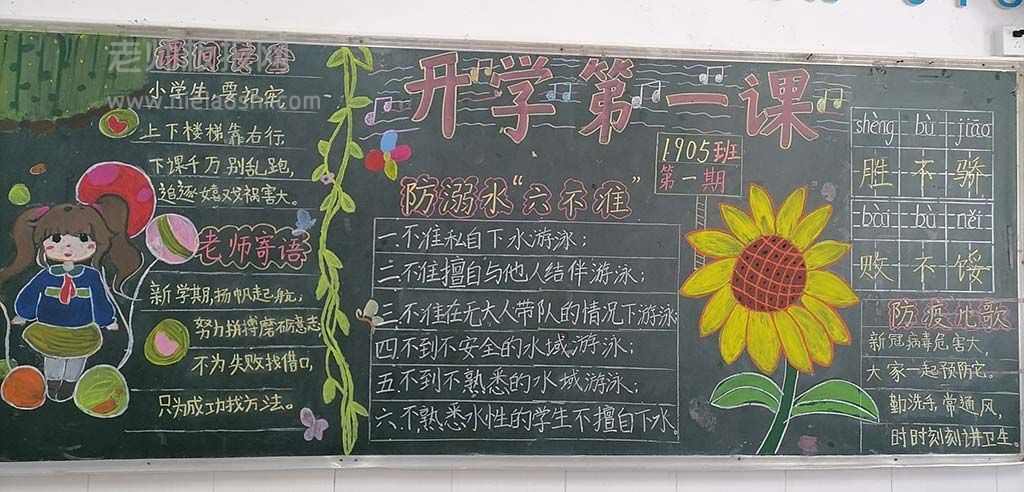 课间安全
小学生 要记牢
上下楼梯靠右行,
下课千万别乱跑,
追逐嬉戏祸害大。
老师寄语
新学期,扬帆起航;
努力拼搏磨砺意志
不为失败找借口,
只为成功找方法。
开学第一课
1905班
第一期
防溺水“六不准”
一.不准私自下水游泳;
二.不准擅自与他人结伴游泳;
三.不准在无大人带队的情况下游泳
四不到不安全的水域游泳;
五不到不熟悉的水域游泳;
六.不熟悉水性的学生不擅自下水。
shèng bù jiāo
胜不骄
bài bù něi
败不馁
防疫儿歌
新冠病毒危害大,
大家一起预防它。
勤洗手,常通风,
时时刻刻讲卫生。